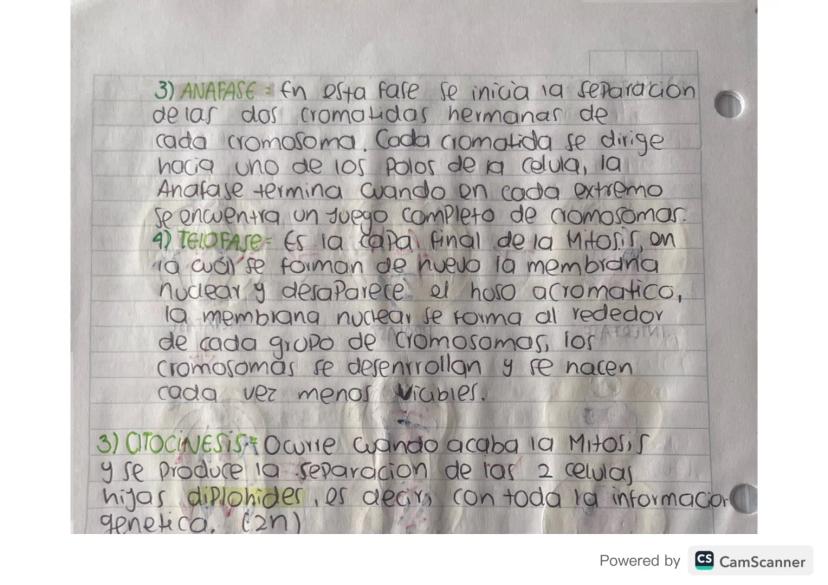 3) ANAFASE = En esta fase se inicia la separacion
de las dos cromatidas hermanas de
cada cromosoma. Cada cromatida se dirige
hacia uno de los polos de la celula, la
Anafase termina cuando en cada extremo
se encuentra un Juego completo de cromosomas.
4) TELOFASE = Es la capa final de la Mitosis, en
la cual se forman de nuevo la membrana
nuclear y desaparece el huso acromatico,
la membrana nuclear se forma al rededor
de cada grupo de cromosomas, los
cromosomas se desenrrollan y se hacen
cada vez menos viables.
3) CITOCINESIS = Ocurre cuando acaba la Mitosis
y se produce la separacion de las 2 celulas
hijas diplohides, es decir, con toda la informacion
genetica. (2n)
Powered by CS CamScanner